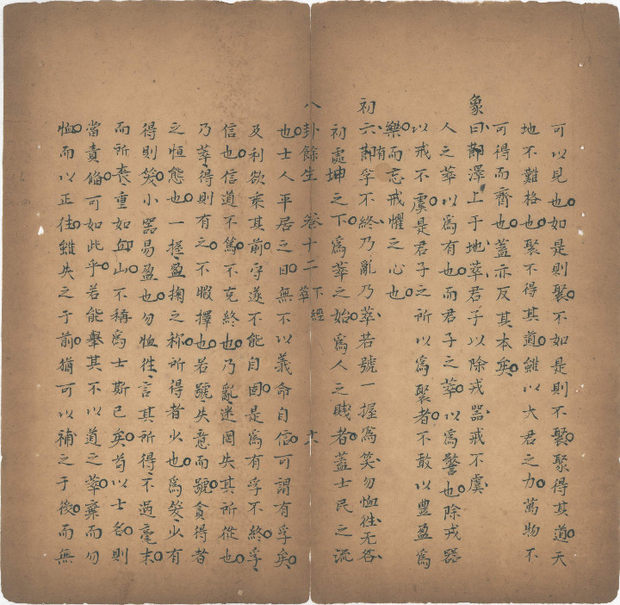 可以見也如是則聚不如是則不聚聚得其道天
地不難格也聚不得其道雖以大君之力萬物不
可得而齊也蓋亦反其本矣
象曰澤上于地萃君子以除戎器戒不虞
人之萃以為有也而君子之萃以為警也除戎器
以戒不虞是君子之所以為聚者不敢以豐盈為
樂而忘戒懼之心也
初六有孚不終乃亂乃萃若號一握為笑勿恤往无咎
初處坤之下為萃之始為人之賤者蓋士民之流
八卦餘生 卷十二 下經 萃 十
也士人平居之日無不以義命自信可謂有孚矣
及利欲來其前守遂不能自固是為有孚不終孚
信也信道不篤不克終也乃亂迷罔失其所從也
乃萃得則有之不暇擇也若號失意而號貪得者
之恒態也一握盈掬之稱所得者少也為笑少有
得則笑小器易盈也勿恤往言其所得不過毫末
而所喪重如丘山不稱為士斯已矣苟以士名則
當責偹可如此乎若能舉其不以道之萃棄而勿
恤而以正往雖失之于前猶可以補之于後而無